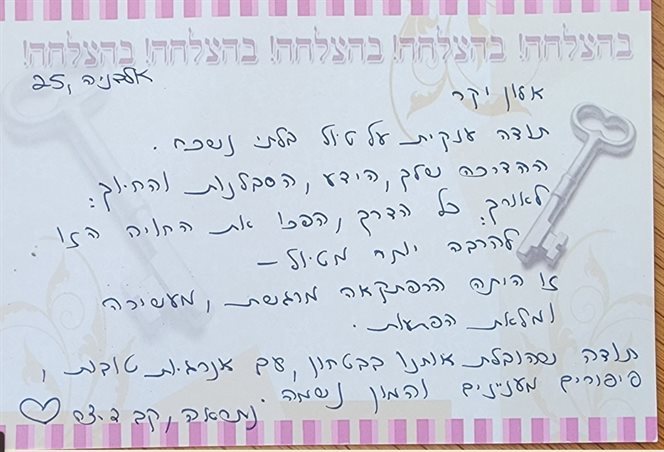 בהצלחה! בהצלחה! בהצלחה! בהצלחה! בהצלחה!
אלבניה, 25
אלון יקר
תודה ענקית על טיול בלתי נשכח.
ההדרכה שלך, הידע, הסבלנות והחיוך:
לאורך כל הדרך, הפכו את החויה הזו
להרבה יותר מטיול –
זו היתה הרפתקאה מרגשת, מעשירה
ומלאת הפתעות.
תודה שהובלת אותנו בבטחון, עם אנרגיות טובות,
סיפורים מעניינים והמון נשמה.